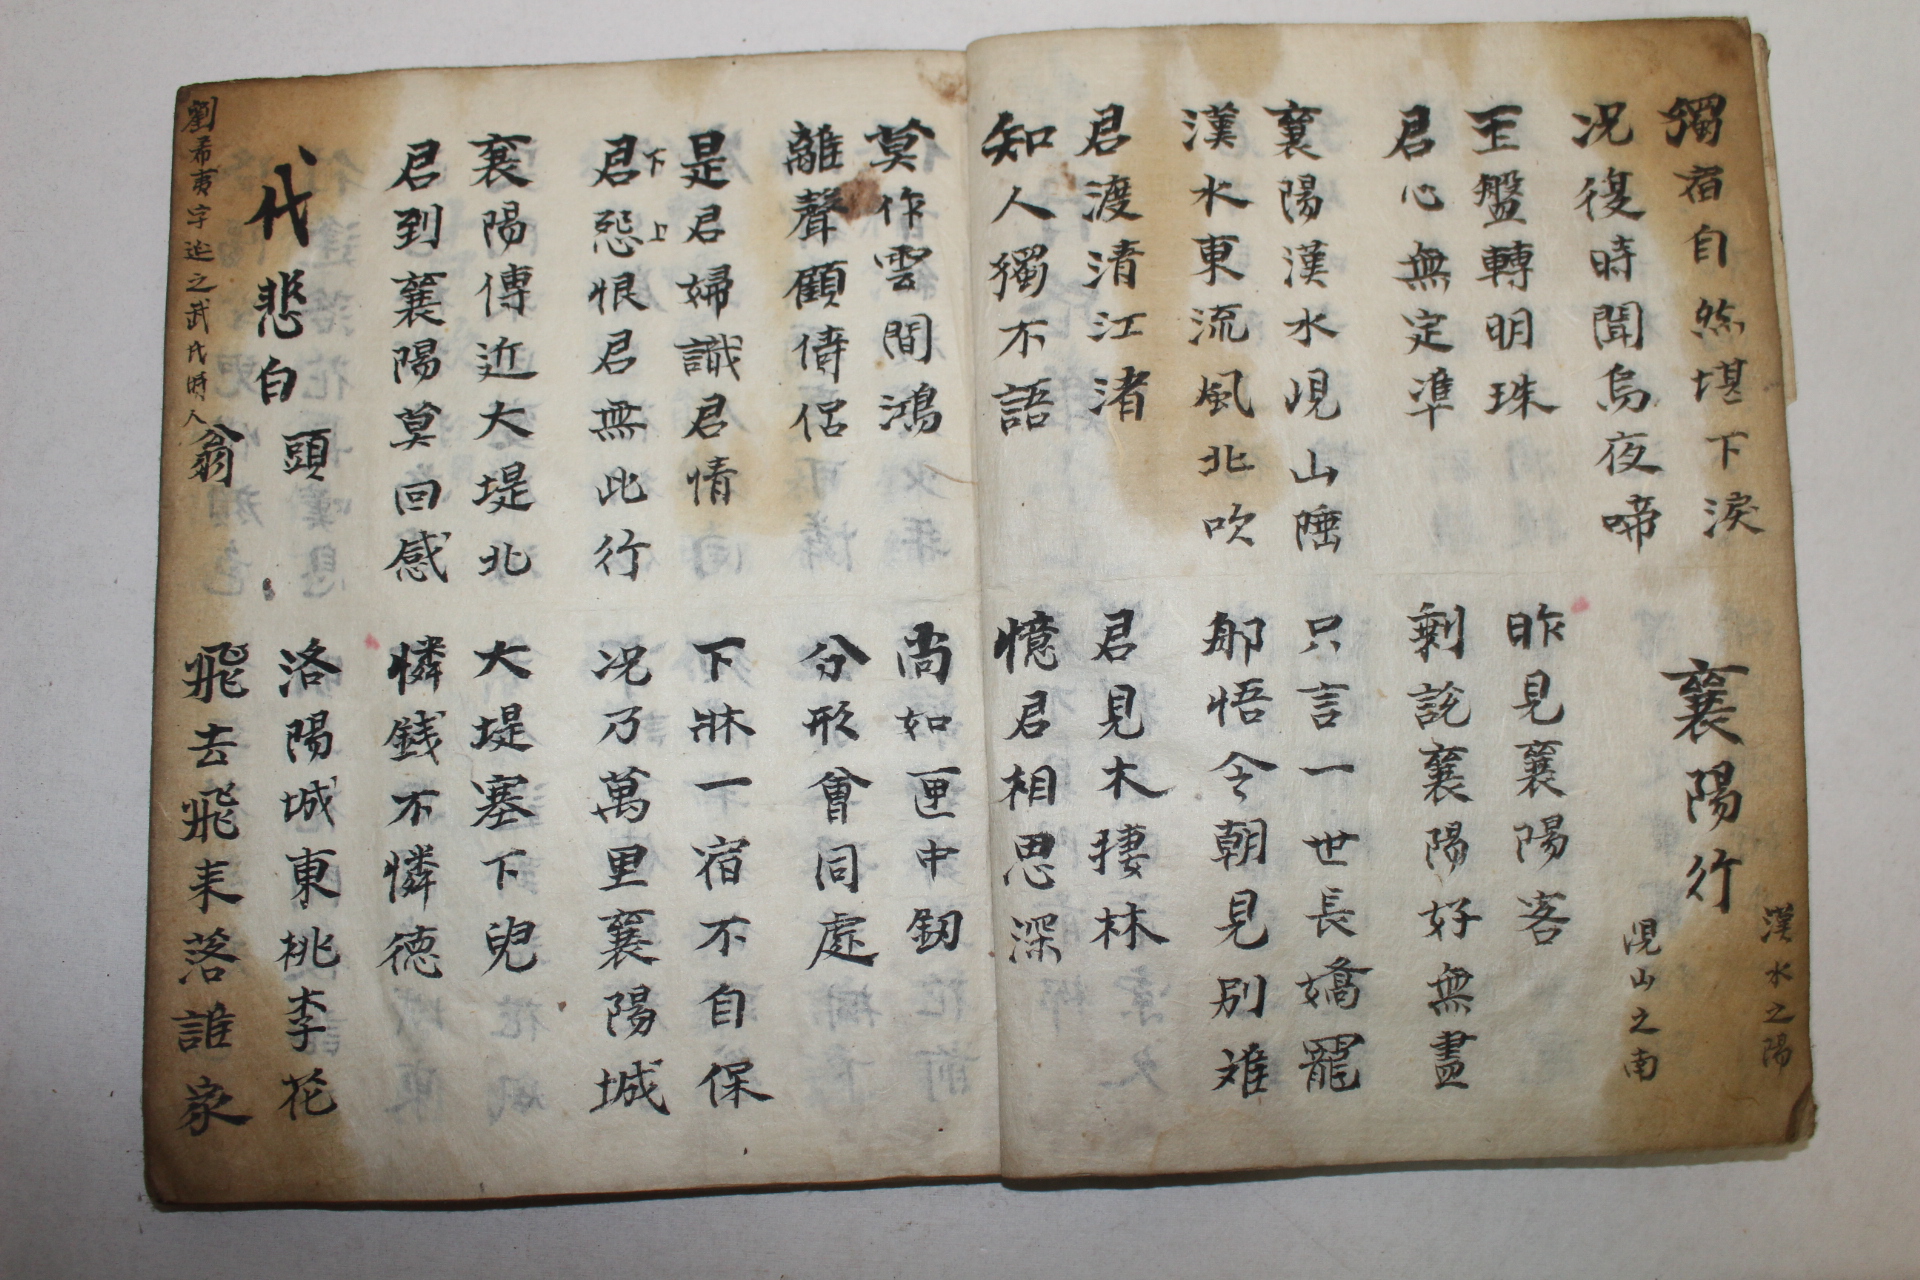 獨宿自然堪下淚
况復時聞烏夜啼
襄陽行
漢水之陽
峴山之南
玉盤轉明珠
君心無定準
昨見襄陽客
剩說襄陽好無盡
襄陽漢水峴山陲
漢水東流風北吹
只言一世長嬌寵
那悟今朝見別難
君渡清江渚
知人獨不語
君見木棲林
憶君相思深
莫作雲間鴻
離聲顧儔侶
尚如匣中釼
分形會同處
是君婦識君情
君怨恨君無此行
下
上
下牀一宿不自保
况乃萬里襄陽城
襄陽傳近大堤北
君到襄陽莫回惑
大堤塞下兒
憐錢不憐德
代悲白頭翁
劉希夷字延之武氏時人
洛陽城東桃李花
飛去飛来落誰家